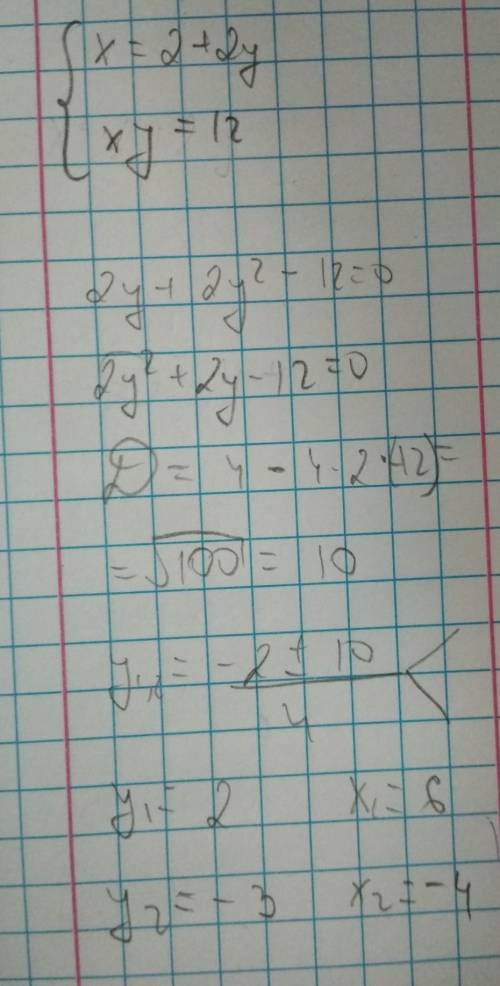 { x = 2 + 2y
xy = 12
2y + 2y² - 12 = 0
2y² + 2y - 12 = 0
D = 4 - 4 · 2 · (-12) =
= √100 = 10
y₁,₂ = (-2 ± 10) / 4
y₁ = 2 x₁ = 6
y₂ = -3 x₂ = -4